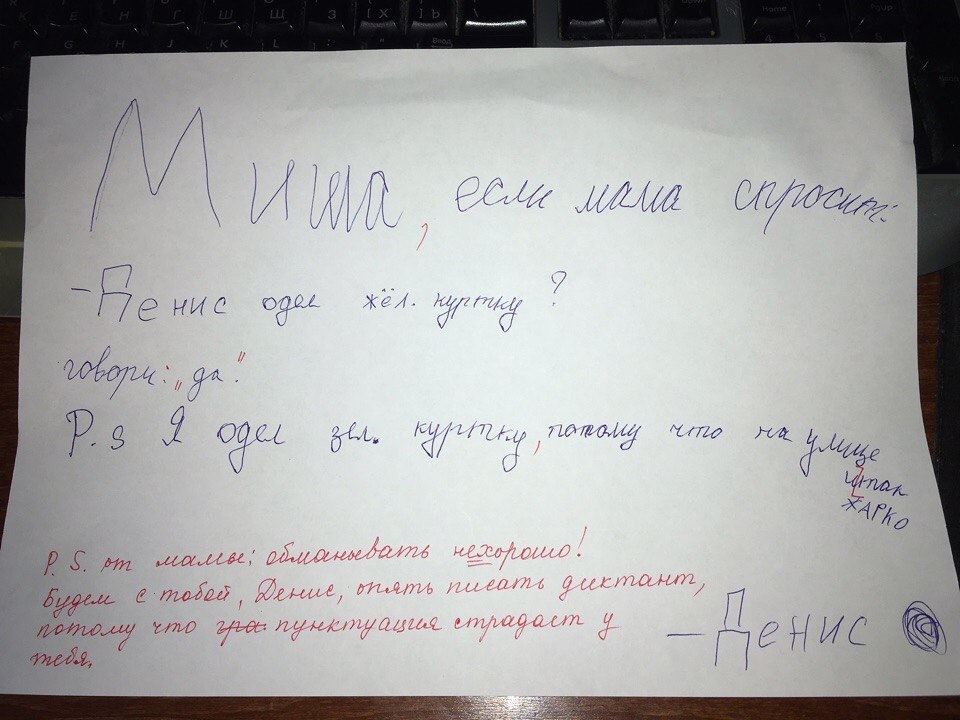 Миша, если мама спросит:
- Денис одел жёл. куртку?
говори: "да".
P.s Я одел зел. куртку, потому что на улице
итак
ЖАРКО
P.S. от мамы: обманывать нехорошо!
Будем с тобой, Денис, опять писать диктант,
потому что гра пунктуация страдает у
тебя.
- Денис